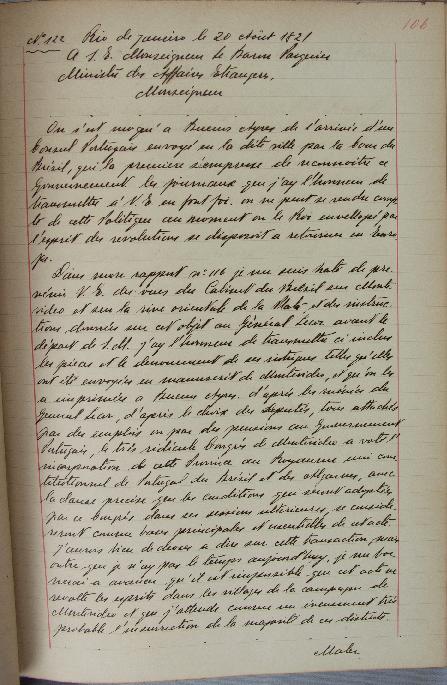 106
Nº 122 Rio de janeiro le 20 Août 1821
A S. E. Monseigneur le Baron Pasquier
Ministre des Affaires Etrangers,
Monseigneur
On s'est moqué a Buenos Ayres de l'arrivée d'un
Consul Portugais envoyé en la dite ville par la cour du
Brésil, qui la première s'empresse de reconnoitre ce
Gouvernement les journaux que j'ay l'honneur de
transmettre à V. E en font foi. on ne peut se rendre comp
te de cette Politique au moment où le Roi enveloppé par
l'esprit des revolutions se disposoit a retourner en Euro
pe.
Dans mon rapport nº 116 je me suis haté de pre-
venir V. E. des vues du Cabinet du Brésil sur Monte
video et sur la rive orientale de la Plata et des instruc
tions données sur cet objet au Général Lecor avant le
départ de S. M. j'ay l'honneur de transmettre ci inclus
les pièces et le denouement de ses intrigues telles qu'elles
ont été envoyées en manuscrit de Montevideo, et qu'on les
a imprimées a Buenos Ayres. d'après les menées du
General Lecor, d'après le choix des Deputés, tous attachés
par des emplois ou par des pensions au Gouvernement
Portugais, le très ridicule Congrès de Montevideo a voté l'
incorporation de cette Province au Royaume uni cons
titutionnel de Portugal du Brésil et des Algarves, avec
la clause precise que les conditions qui seront adoptées
par ce Congrès dans ses sessions ultérieures, se conside-
reront comme bases principales et essentielles de cet acte.
J'aurois bien de choses a dire sur cette transaction mais
outre que je n'ay pas le temps aujourd'huy, je me bor
nerai a avancer qu'il est impossible que cet acte ne
revolte les esprits dans les villages de la campagne de
Montevideo et que j'attends comme un évenement très
probable l'insurrection de la majorité de ces districts.
Maler